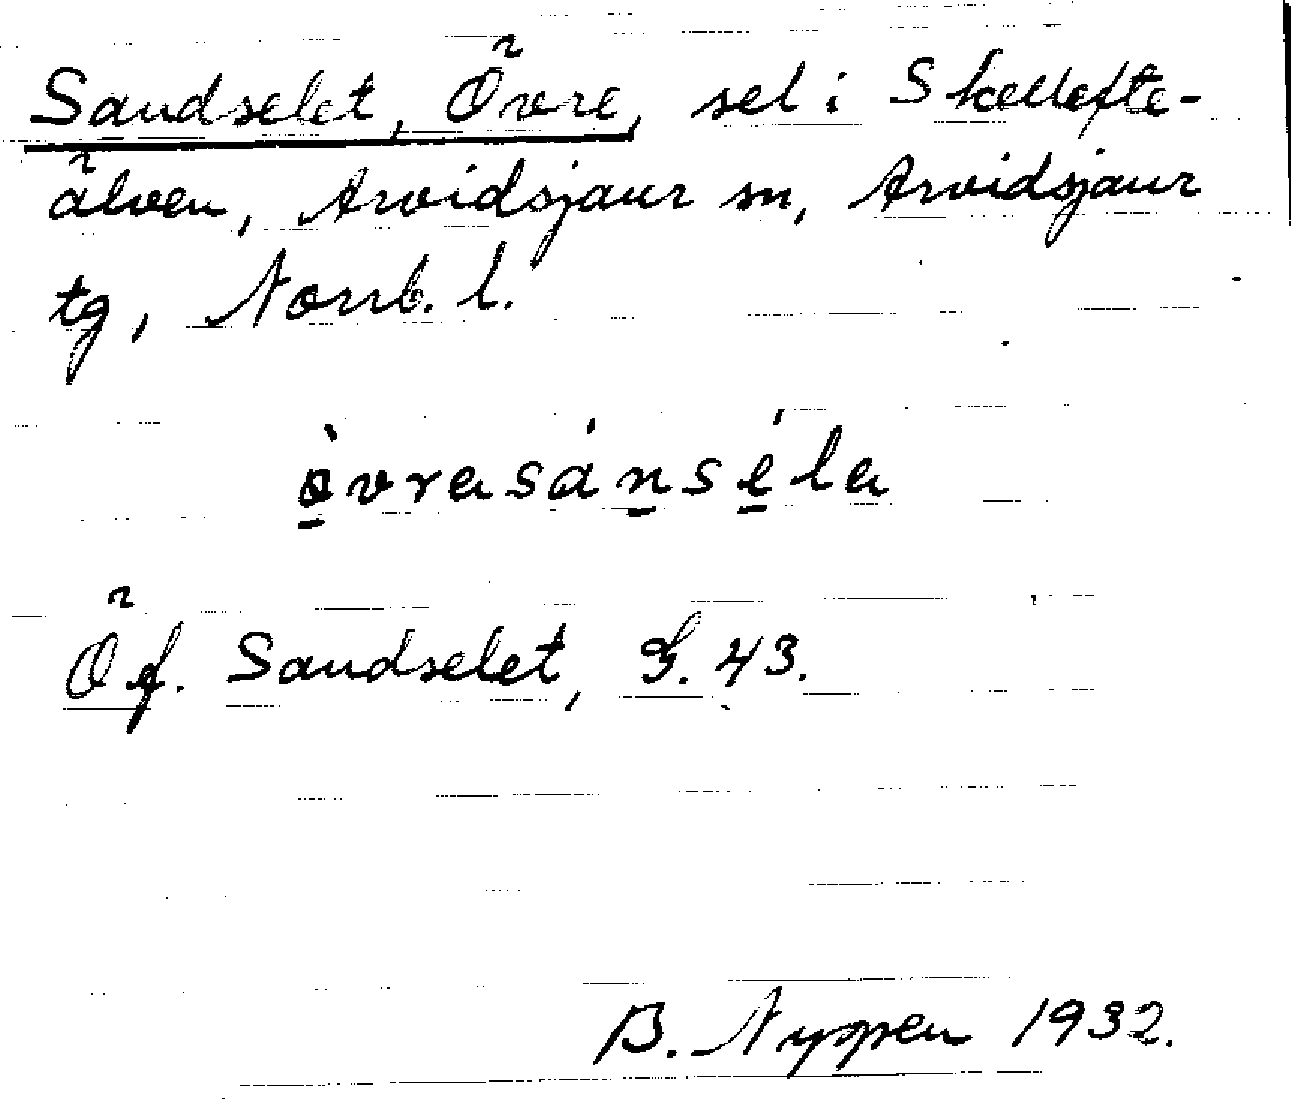 Sandselet, Övre, sel i Skellefte-
älven, Arvidsjaur sn, Arvidsjaur
tg, Norrb. l.
ö̀vrasánséla
Öf. Sandselet, G. 43.
B. Nyppen 1932.